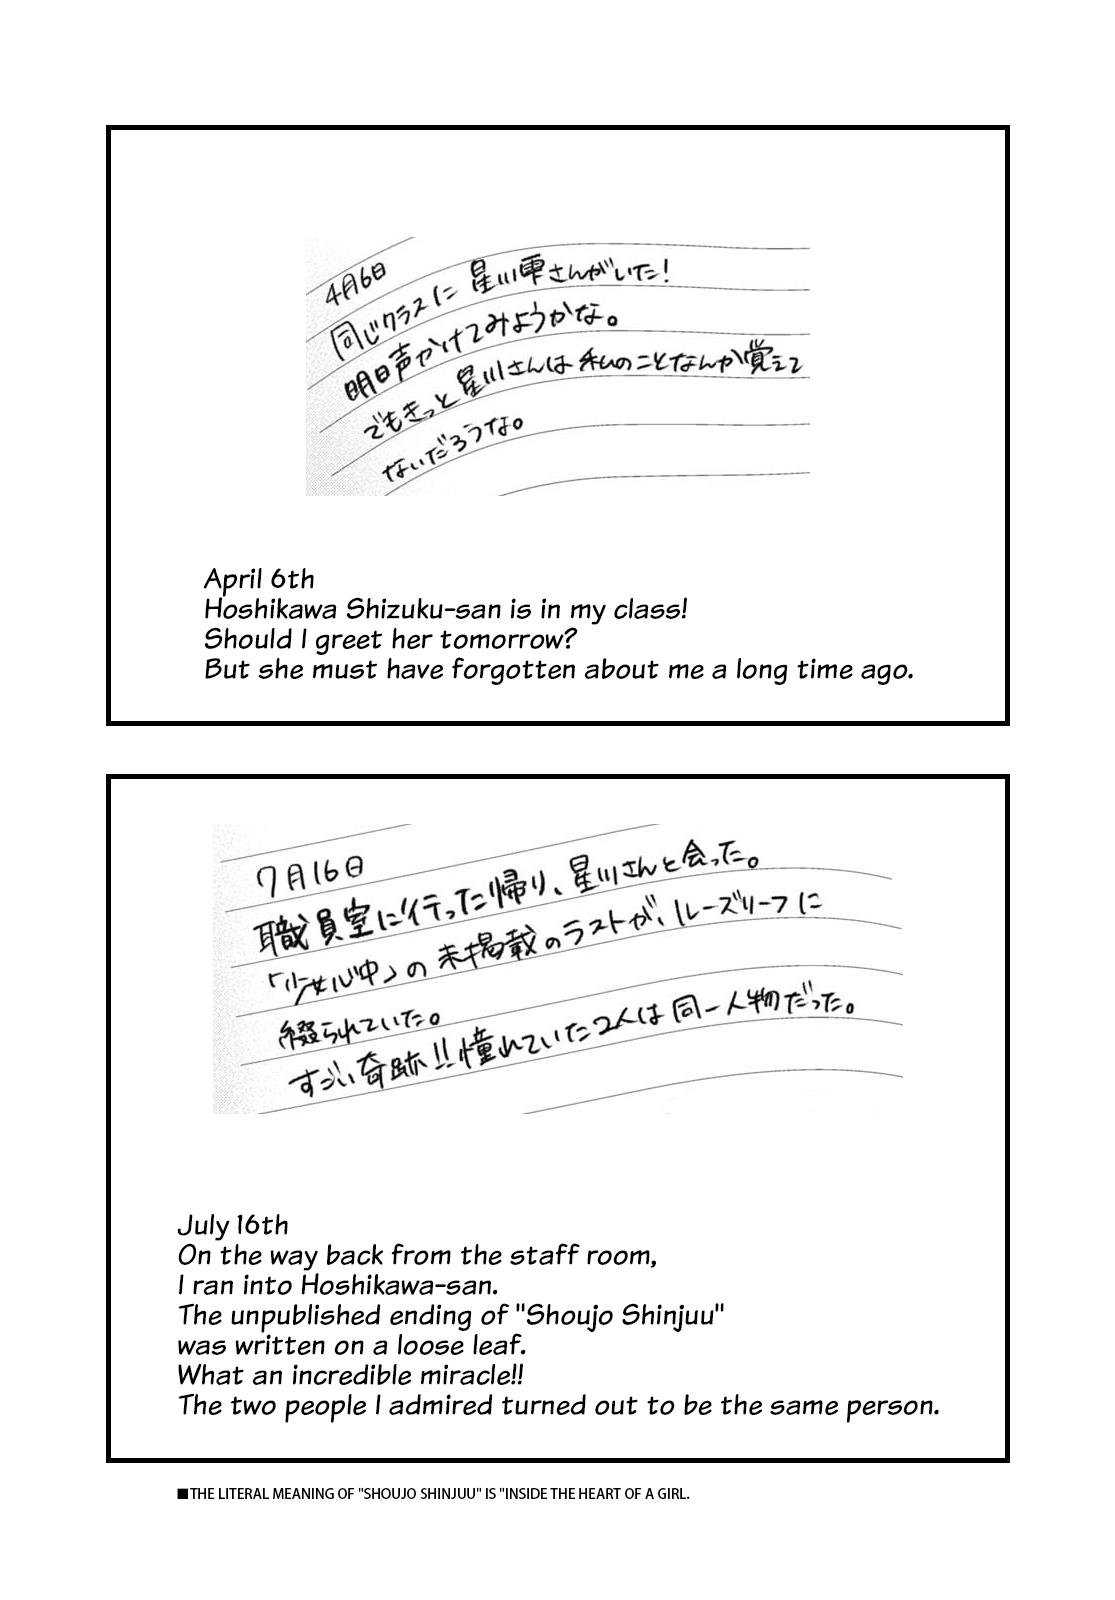 4月6日
同じクラスに星川雫さんがいた！
明日声かけてみようかな。
でもきっと星川さんは私のことなんか覚えて
ないだろうな。
April 6th
Hoshikawa Shizuku-san is in my class!
Should I greet her tomorrow?
But she must have forgotten about me a long time ago.
7月16日
職員室に行った帰り、星川さんと会った。
「少女心中」の未掲載のラストが、ルーズリーフに
綴られていた。
すごい奇跡!!憧れていた2人は同一人物だった。
July 16th
On the way back from the staff room,
I ran into Hoshikawa-san.
The unpublished ending of "Shoujo Shinjuu"
was written on a loose leaf.
What an incredible miracle!!
The two people I admired turned out to be the same person.
■THE LITERAL MEANING OF "SHOUJO SHINJUU" IS "INSIDE THE HEART OF A GIRL.